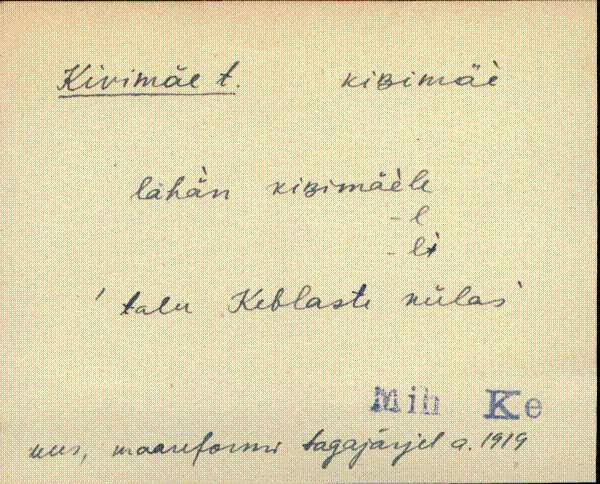 Kivimäe t. kiʙimäè
lähä̀n kiʙimäèle
-l
-lè
' talu Keblaste külas'
Mih Ke
uus, maareformi tagajärjel a. 1919